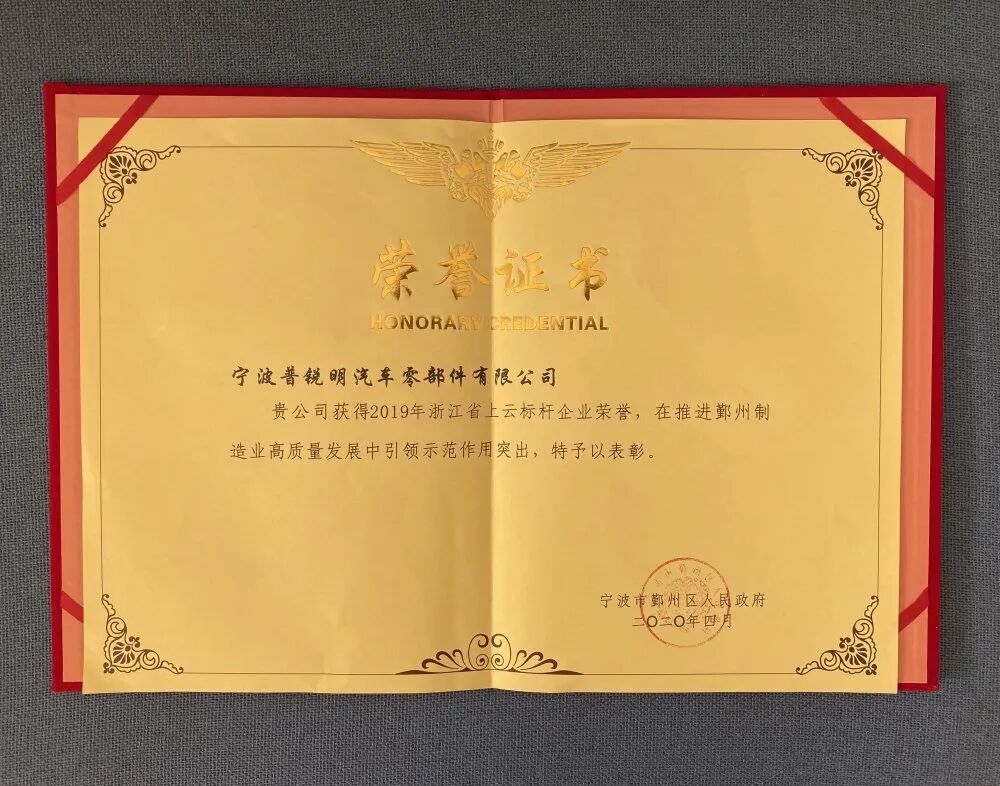 荣誉证书
HONORARY CREDENTIAL
宁波普锐明汽车零部件有限公司
贵公司获得2019年浙江省上云标杆企业荣誉，在推进鄞州制
造业高质量发展中引领示范作用突出，特予以表彰。
宁波市鄞州区人民政府
二〇二〇年四月